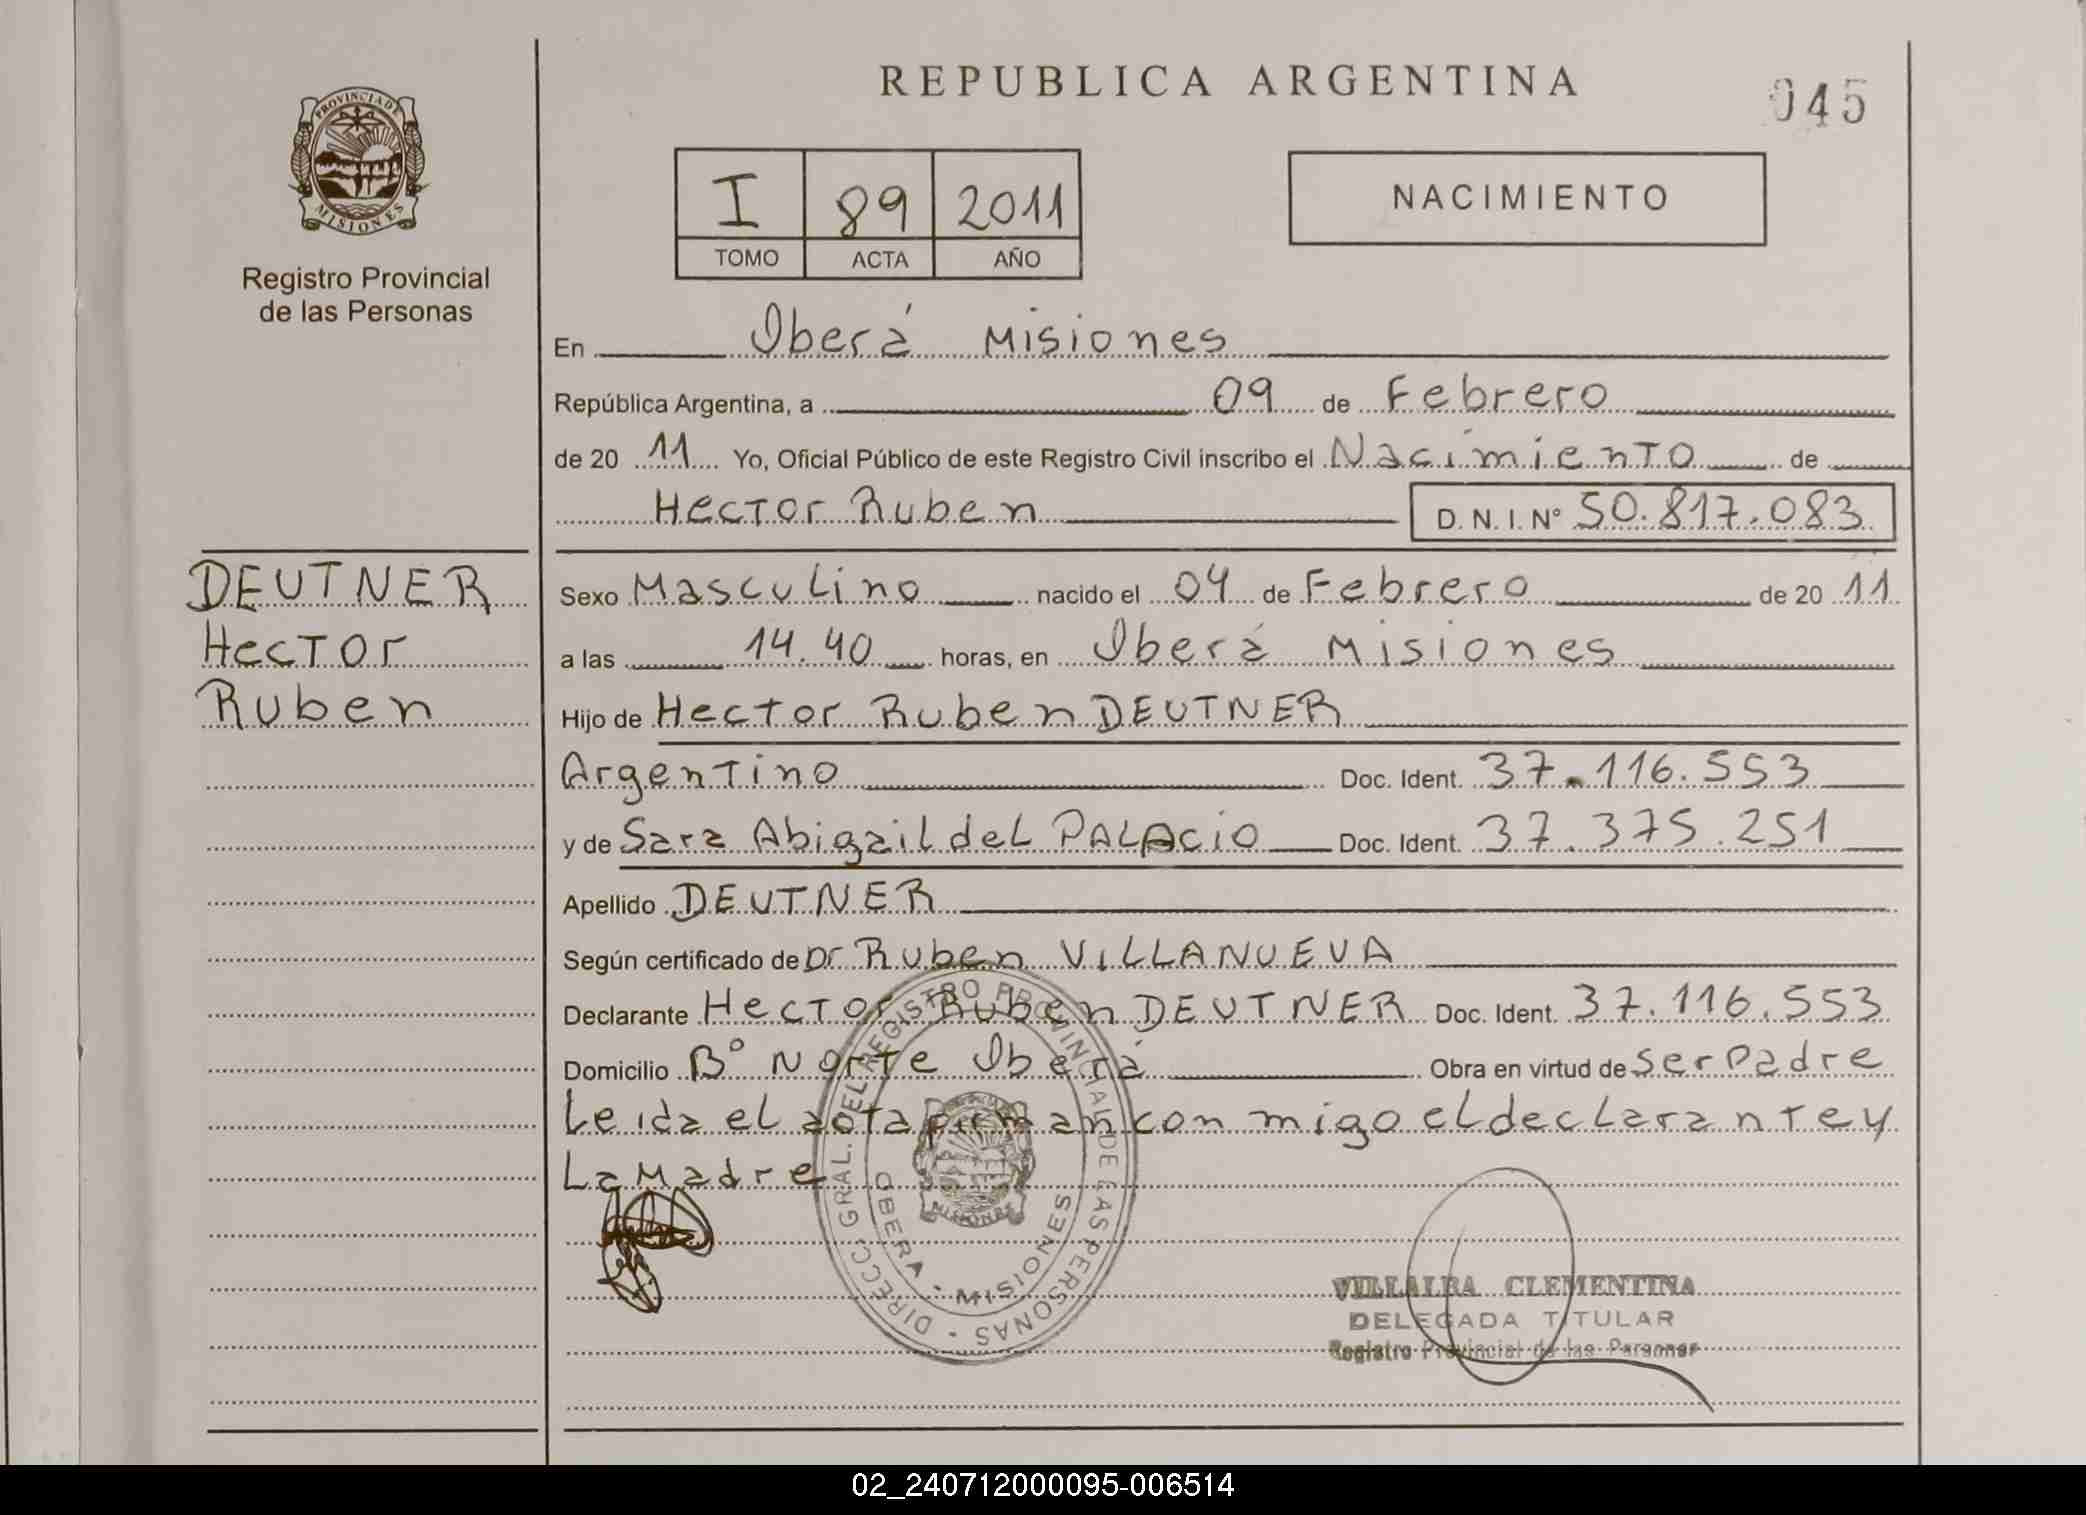 REPUBLICA ARGENTINA
045
PROVINCIA DE
MISIONES
Registro Provincial
de las Personas
I 89 2011
TOMO ACTA AÑO
NACIMIENTO
En Oberá Misiones
República Argentina, a 09 de Febrero
de 20 11 Yo, Oficial Público de este Registro Civil inscribo el Nacimiento de
Hector Ruben D. N. I. Nº 50.817.083
DEUTNER
Hector
Ruben
Sexo Masculino nacido el 04 de Febrero de 20 11
a las 14.40 horas, en Oberá Misiones
Hijo de Hector Ruben DEUTNER
Argentino Doc. Ident. 37.116.553
y de Sara Abigail del PALACIO Doc. Ident. 37.375.251
Apellido DEUTNER
Según certificado de Dr Ruben VILLANUEVA
Declarante Hector Ruben DEUTNER Doc. Ident. 37.116.553
Domicilio Bº Norte Oberá Obra en virtud de ser Padre
Leida el acta firman con migo el declarante y
La Madre
DIRECC. GRAL. DEL REGISTRO PROVINCIAL DE LAS PERSONAS
OBERA - MISIONES
MISIONES
VILLALBA CLEMENTINA
DELEGADA TITULAR
Registro Provincial de las Personas
02_240712000095-006514